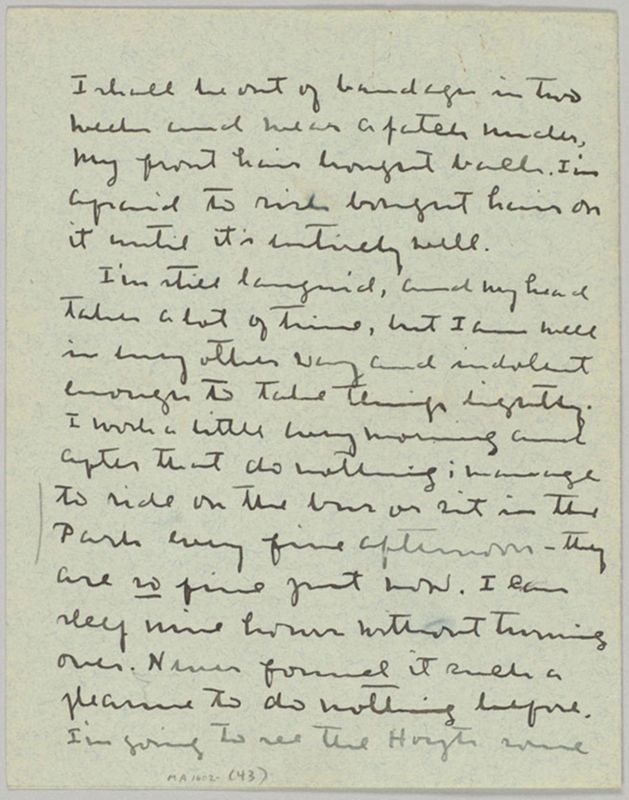 I shall be out of bandages in two
weeks and wear a patch under,
my front hair brought back. I'm
afraid to risk bought hair on
it until it's entirely well.
I'm still languid, and my head
takes a lot of time, but I am well
in every other way and indolent
enough to take things lightly.
I work a little every morning and
after that do nothing; manage
to ride on the bus or sit in the
Park every fine afternoon - they
are so fine just now. I can
sleep nine hours without turning
over. Never found it such a
pleasure to do nothing before.
I'm going to see the Hoyts some
MA 1602- (43)